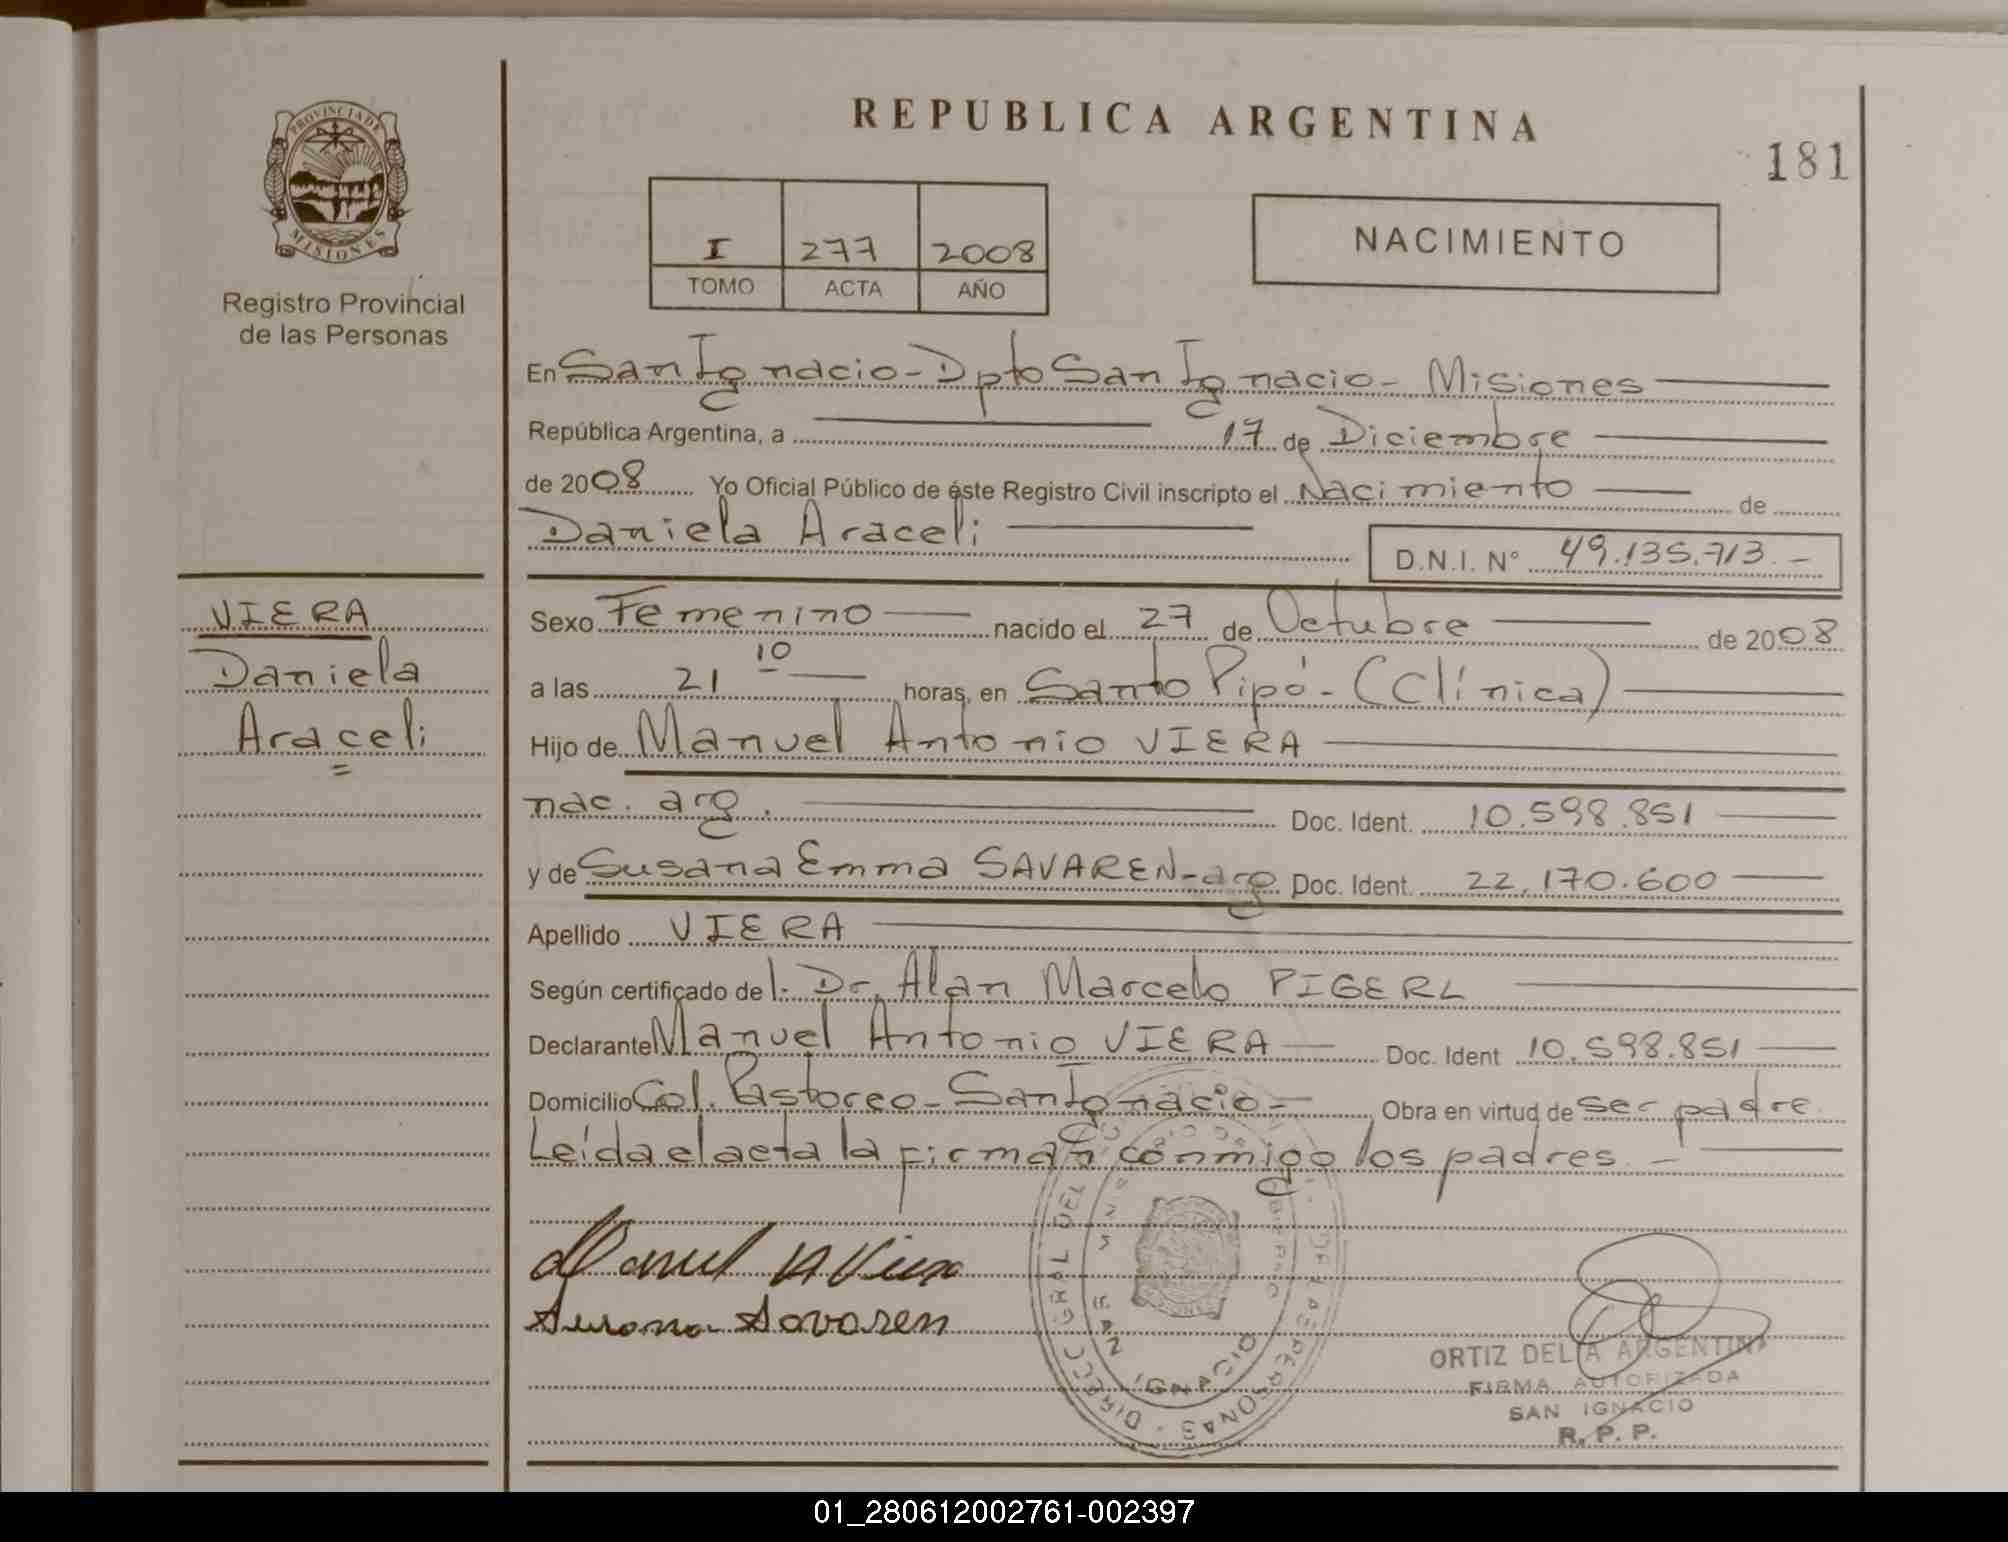 REPUBLICA ARGENTINA
181
PROVINCIA DE
MISIONES
Registro Provincial
de las Personas
I 277 2008
TOMO ACTA AÑO
NACIMIENTO
En San Ignacio - Dpto San Ignacio - Misiones
República Argentina, a 17 de Diciembre
de 2008 Yo Oficial Público de éste Registro Civil inscripto el Nacimiento de
Daniela Araceli
D.N.I. N° 49.135.713.-
VIERA
Daniela
Araceli
Sexo Femenino nacido el 27 de Octubre de 2008
a las 21 10 horas, en Santo Pipó - (Clínica)
Hijo de Manuel Antonio VIERA
nac. arg. Doc. Ident. 10.598.851
y de Susana Emma SAVAREN - arg Doc. Ident. 22.170.600
Apellido VIERA
Según certificado del. Dr. Alan Marcelo PIGERL
Declarante Manuel Antonio VIERA Doc. Ident 10.598.851
Domicilio Col. Pastoreo - San Ignacio - Obra en virtud de ser padre.
Leída el acta la firman conmigo los padres. -
Manuel A Viera
Susana Savaren
DIRECC GRAL DEL PERSONAS
IGNACIO
ORTIZ DELIA ARGENTINA
FIRMA AUTORIZADA
SAN IGNACIO
R. P. P.
01_280612002761-002397